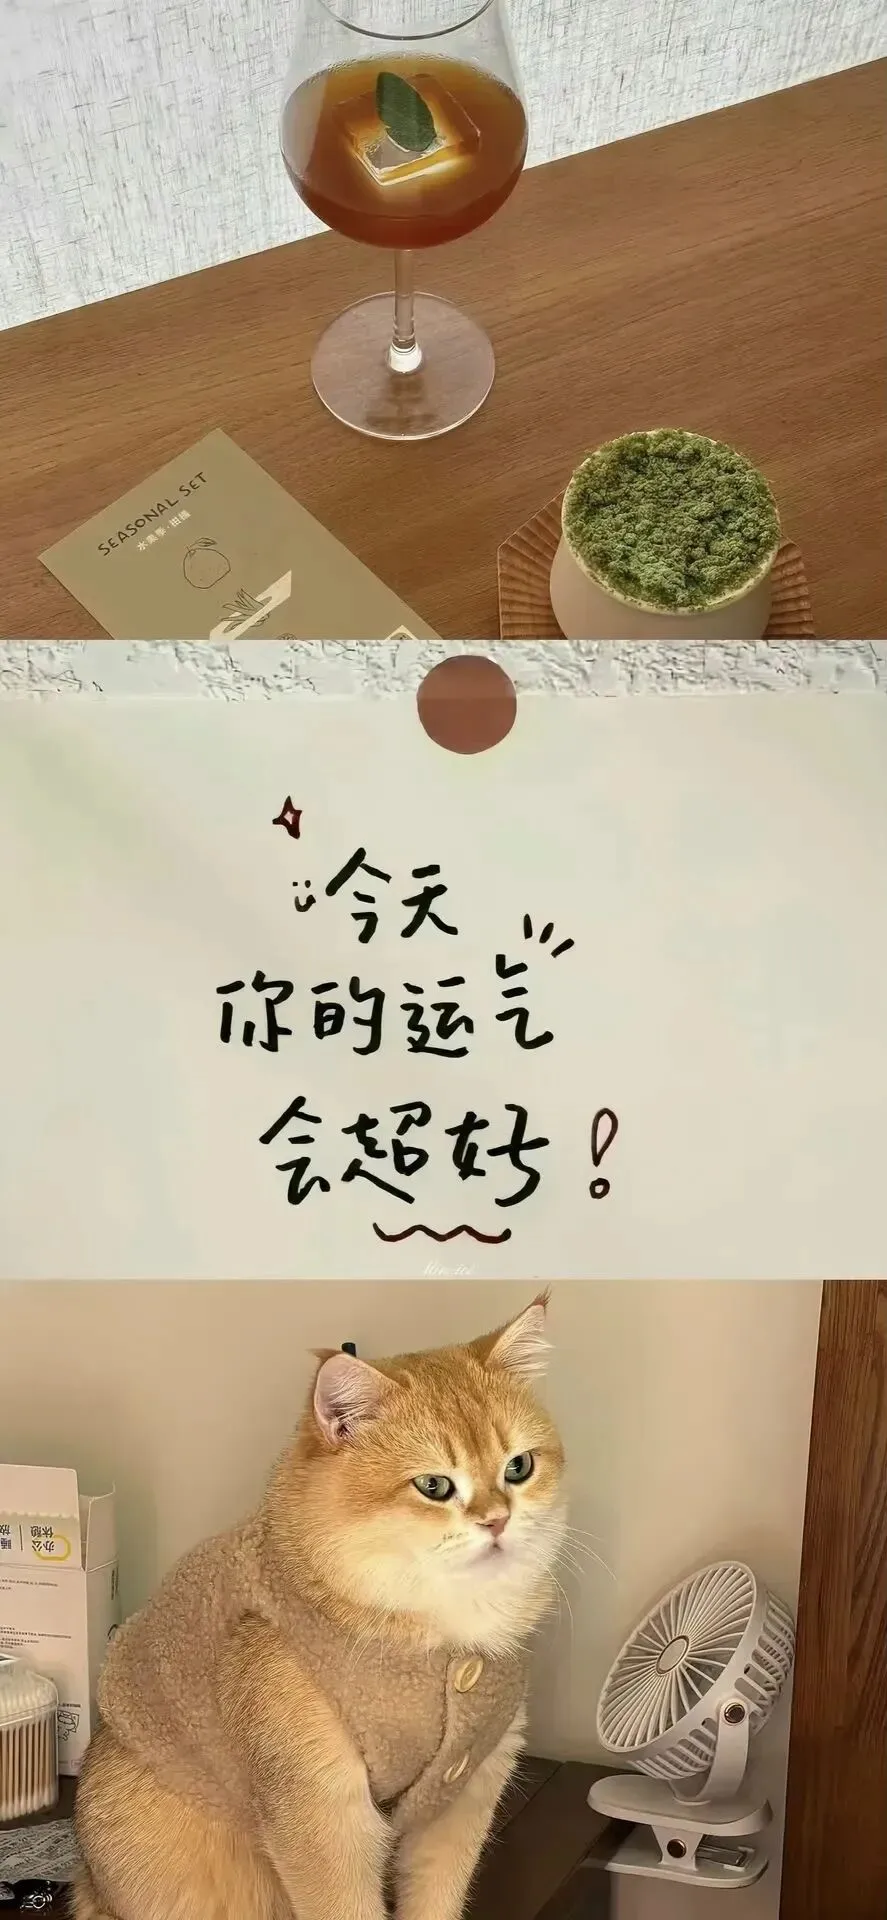 SEASONAL SET
水果季·柑橘
今天
你的运气
会超好！
办公
休憩